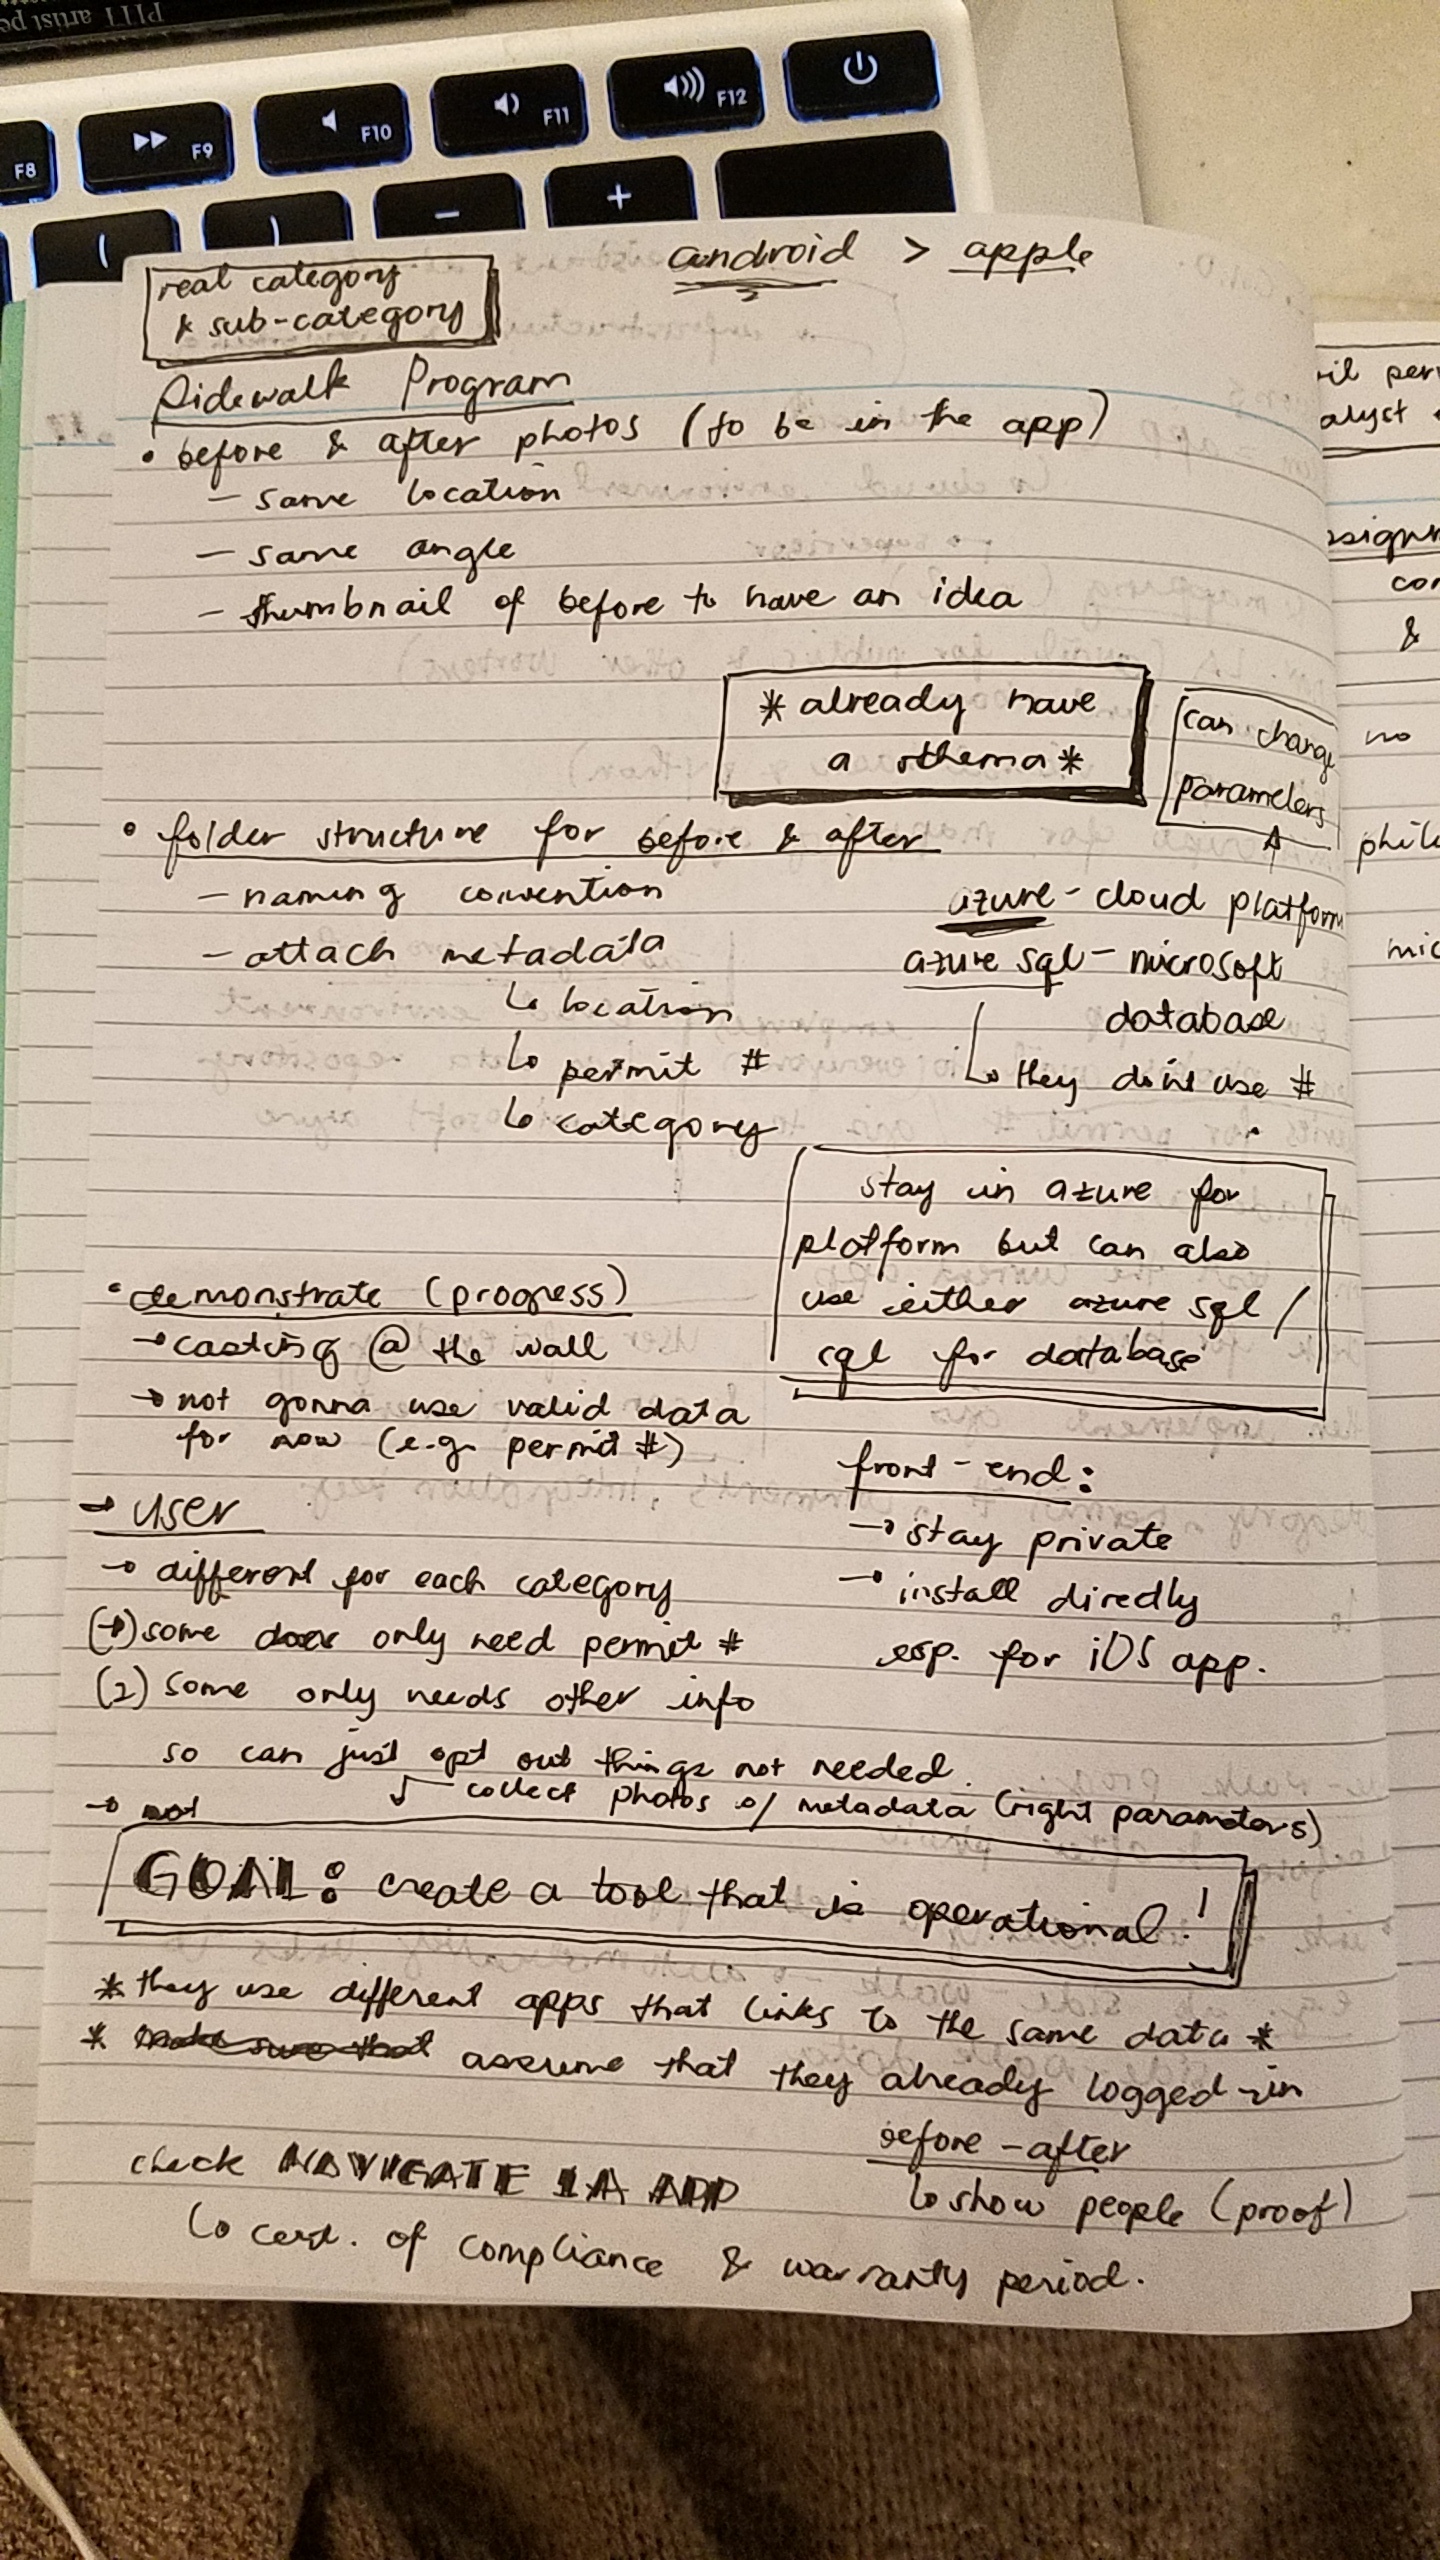 PITT artist pe
F8
F9
F10
F11
F12
(
)
-
+
real category
& sub-category
android > apple
Sidewalk Program
• before & after photos (to be in the app)
- same location
- same angle
- thumbnail of before to have an idea
* already have
a schema *
can change
parameters
• folder structure for before & after
- naming convention
- attach metadata
↳ location
↳ permit #
↳ category
azure - cloud platform
azure sql - microsoft
database
↳ they don't use #
stay in azure for
platform but can also
use either azure sql /
sql for database
• demonstrate (progress)
→ casting @ the wall
→ not gonna use valid data
for now (e.g. permit #)
→ user
→ different for each category
(→) some only need permit #
(2) some only needs other info
so can just opt out things not needed.
→ not
collect photos w/ metadata (right parameters)
front-end:
→ stay private
→ install directly
esp. for iOS app.
GOAL: create a tool that is operational!
* they use different apps that links to the same data *
* make sure that assume that they already logged-in
before - after
↳ show people (proof)
check NAVIGATE LA APP
↳ cert. of compliance & warranty period.
alyst
&
no